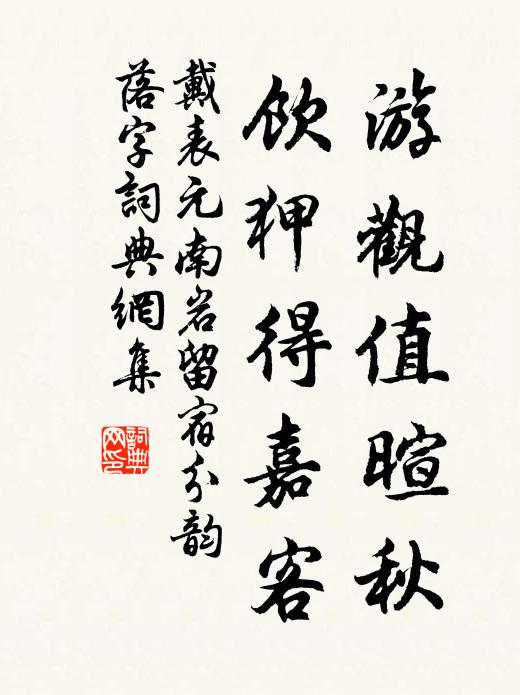 游觀值暄秋
飲狎得嘉客
戴表元南岩留宿分韵
落字詞典網集
詞典網印